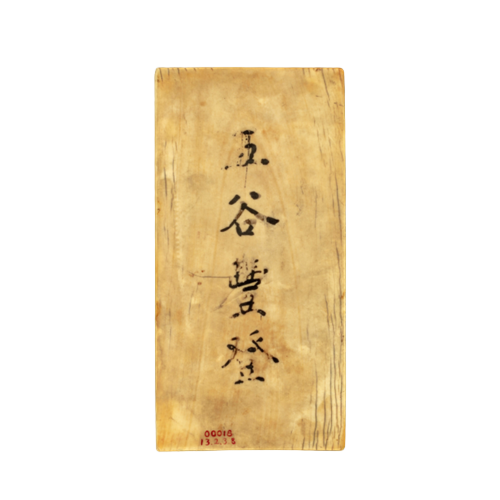 五谷豐登
00015
13.2.38